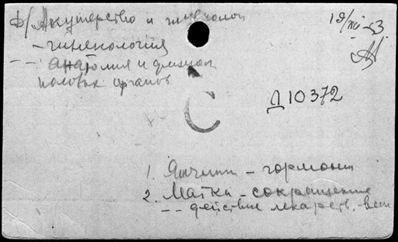 ф/Акушерство и гинекол
19/XII-53
– гинекология
– – анатомия и физиол
половых органов
С
Д10372
1. Яичники – гормоны
2. Матка – сокращение
– – действие лекарств. вещ